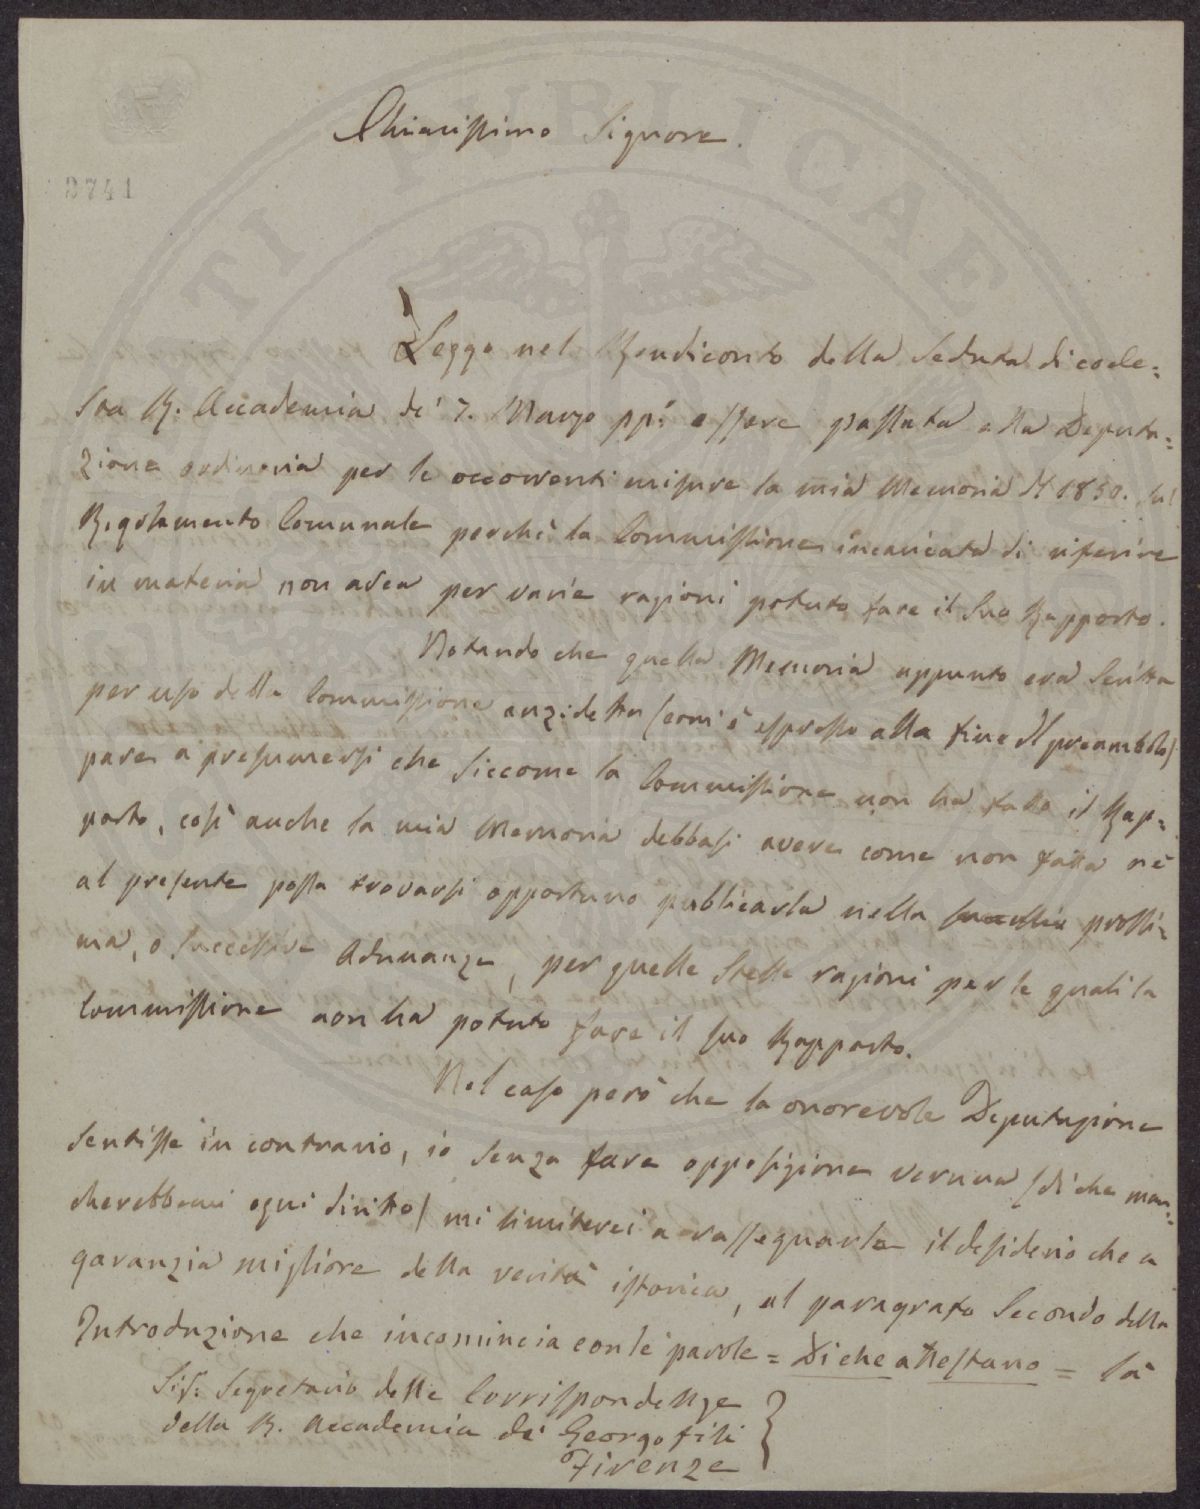 Chiarissimo Signore.
3741
Leggo nel Rendiconto della Seduta di code=
sta R. Accademia de' 7. Marzo pp: essere passata alla Deputa=
zione ordinaria per le occorrenti misure la mia Memoria del 1850. sul
Regolamento Comunale perchè la Commissione incaricata di riferire
in materia non avea per varie ragioni potuto fare il suo Rapporto.
Notando che quella Memoria appunto era scritta
per uso della Commissione anzidetta (com'è espresso alla fine del preambolo)
pare a presumersi che siccome la Commissione non ha fatto il Rap=
porto, così anche la mia Memoria debbasi avere come non fatta nè
al presente possa trovarsi opportuno publicarla nella prossi=
ma, o successive Adunanze, per quelle stesse ragioni per le quali la
Commissione non ha potuto fare il suo Rapporto.
Nel caso però che la onorevole Deputazione
sentisse in contrario, io senza fare opposizione veruna (di che man=
cherebbemi ogni diritto) mi limiterei a rassegnarle il desiderio che a
garanzia migliore della verità istorica, al paragrafo secondo della
Introduzione che incomincia con le parole = Di che attestano = là
Sig: Segretario delle Corrispondenze
della R. Accademia de' Georgofili
Firenze